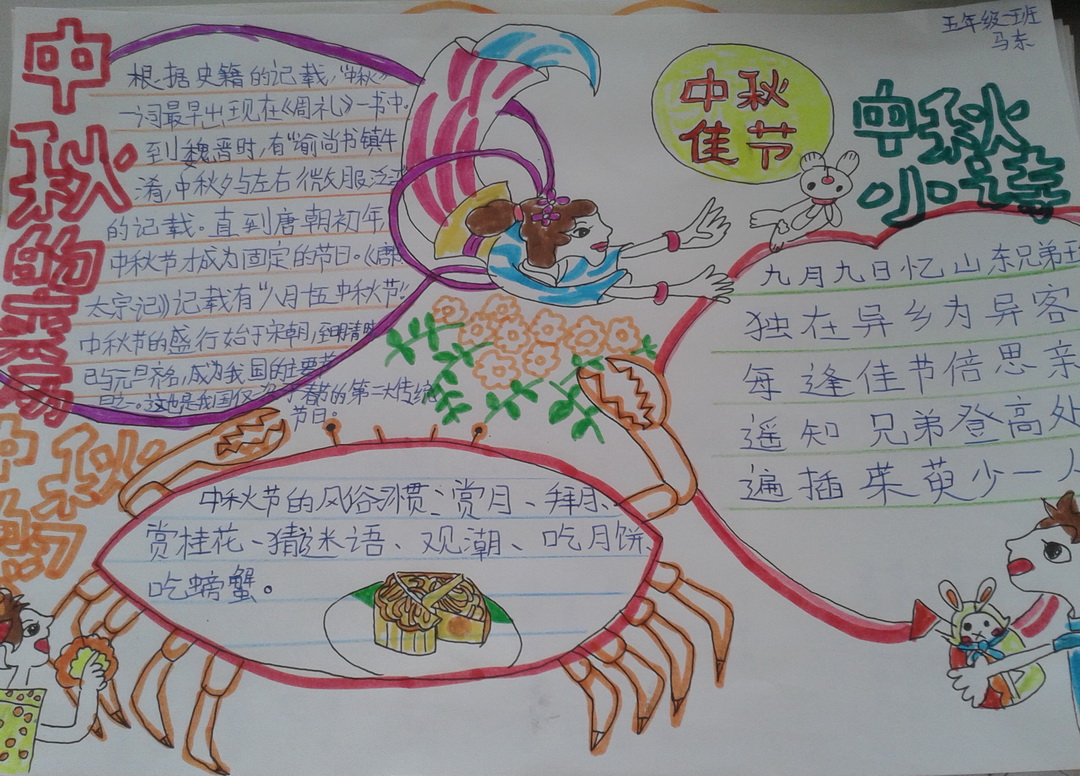 五年级一班
马东
中秋佳节
中秋的来历
根据史籍的记载,“中秋”
一词最早出现在《周礼》一书中。
到魏晋时,有“谕尚书镇牛
淆,中秋夕与左右微服泛江”
的记载。直到唐朝初年
中秋节才成为固定的节日。《唐
太宗记》记载有“八月十五中秋节”
中秋节的盛行始于宋朝,至明清时
已与元旦齐名,成为我国的主要节
日之一。这也是我国仅次于春节的第二大传统
节日。
中秋小诗
九月九日忆山东兄弟王
独在异乡为异客
每逢佳节倍思亲
遥知兄弟登高处
遍插茱萸少一人
中秋
中秋节的风俗习惯:赏月、拜月、
赏桂花、猜迷语、观潮、吃月饼、
吃螃蟹。